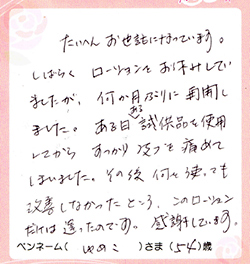 たいへんお世話になっています。
しばらくローションをお休みしてい
ましたが、何か月ぶりに再開し
ました。ある日ある試供品を使用
してからすっかり皮フを痛めて
しまいました。その後何を使っても
改善しなかったところ、このローション
だけは違ったのです。感謝しています。
ペンネーム( ゆめこ )さま(54)歳